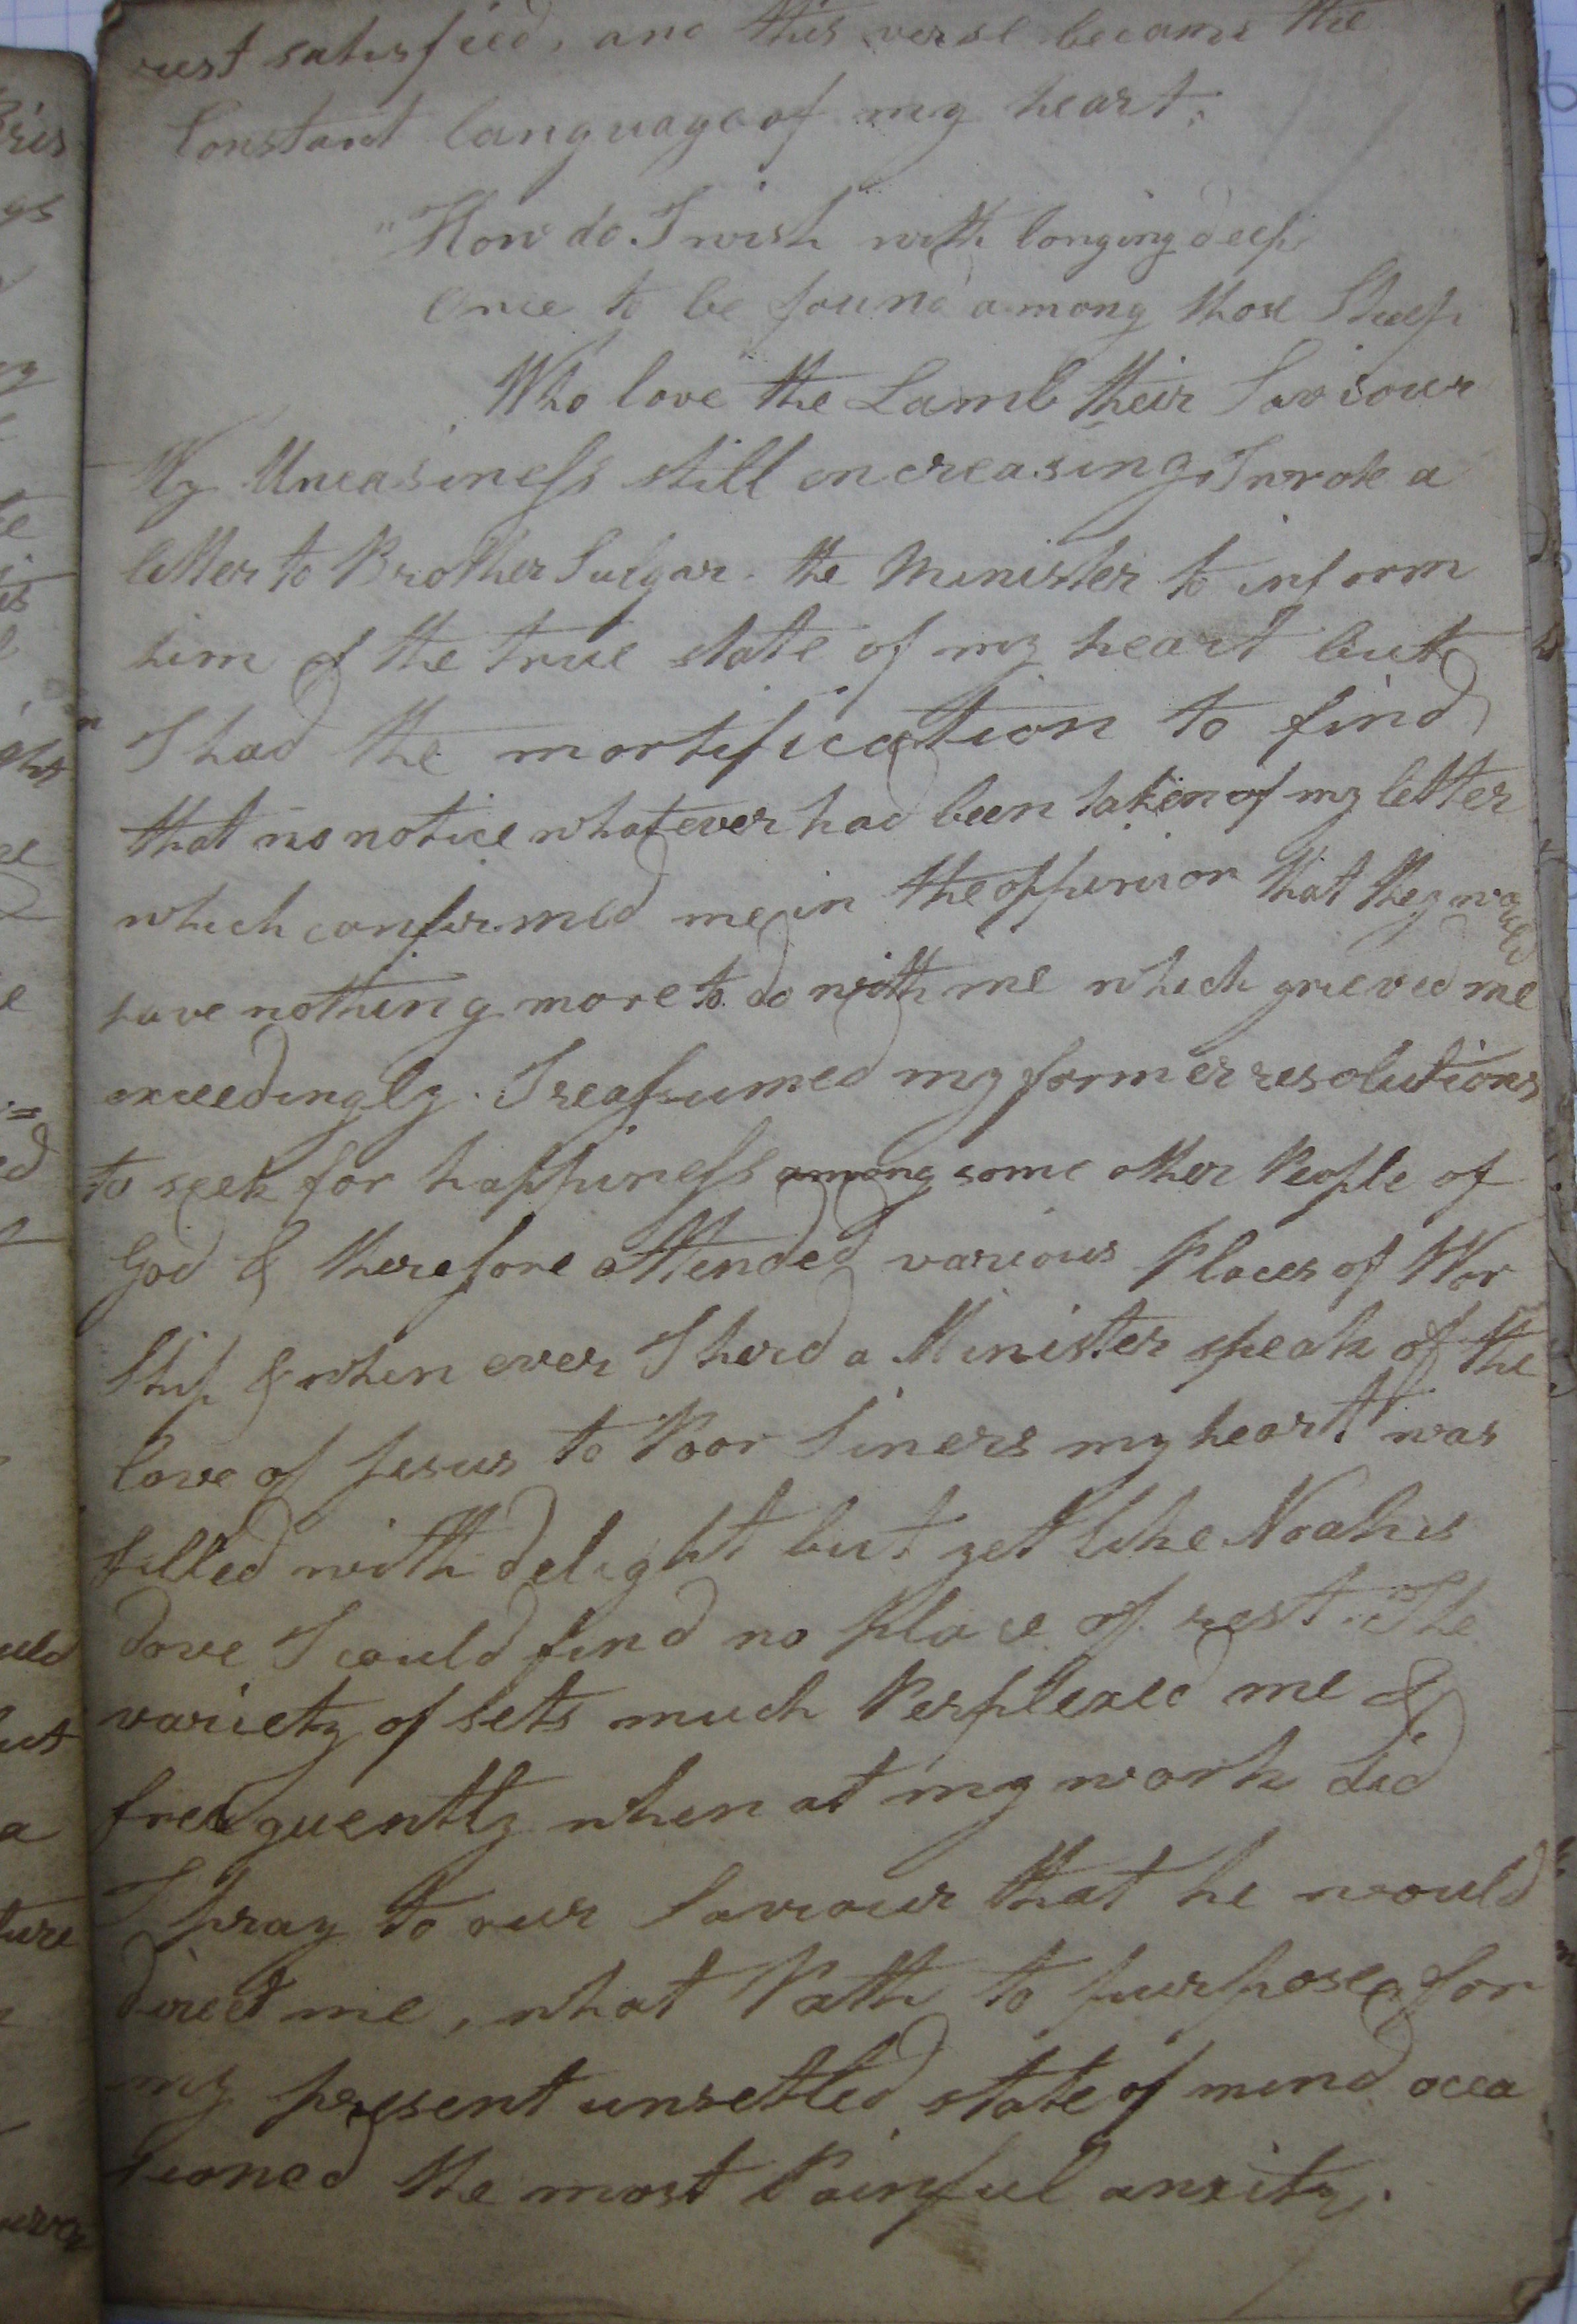 rest satisfied, and this verse became the
Constant language of my heart;
"How do I wish with longing deep
Once to be found among those Sheep
Who love the Lamb their Saviour
My Uneasiness still increasing, I wrote a
letter to Brother Sulgar the Minister to inform
him of the true state of my heart but
I had the mortification to find
that no notice whatever had been taken of my letter
which confirmed me in the oppinion that they would
have nothing more to do with me which grieved me
exceedingly. I reassumed my former resolutions
to seek for happiness among some other People of
God & therefore attended various Places of Wor
ship & when ever I herd a Minister speak of the
love of Jesus to Poor Siners my heart was
filled with delight but yet like Noahs
dove I could find no Place of rest. The
variety of sets much Perplexed me &
frequently when at my work did
I pray to our Saviour that he would
direct me, what Path to purpose for
my present unsetled state of mind occa
sioned the most Painful anxity.